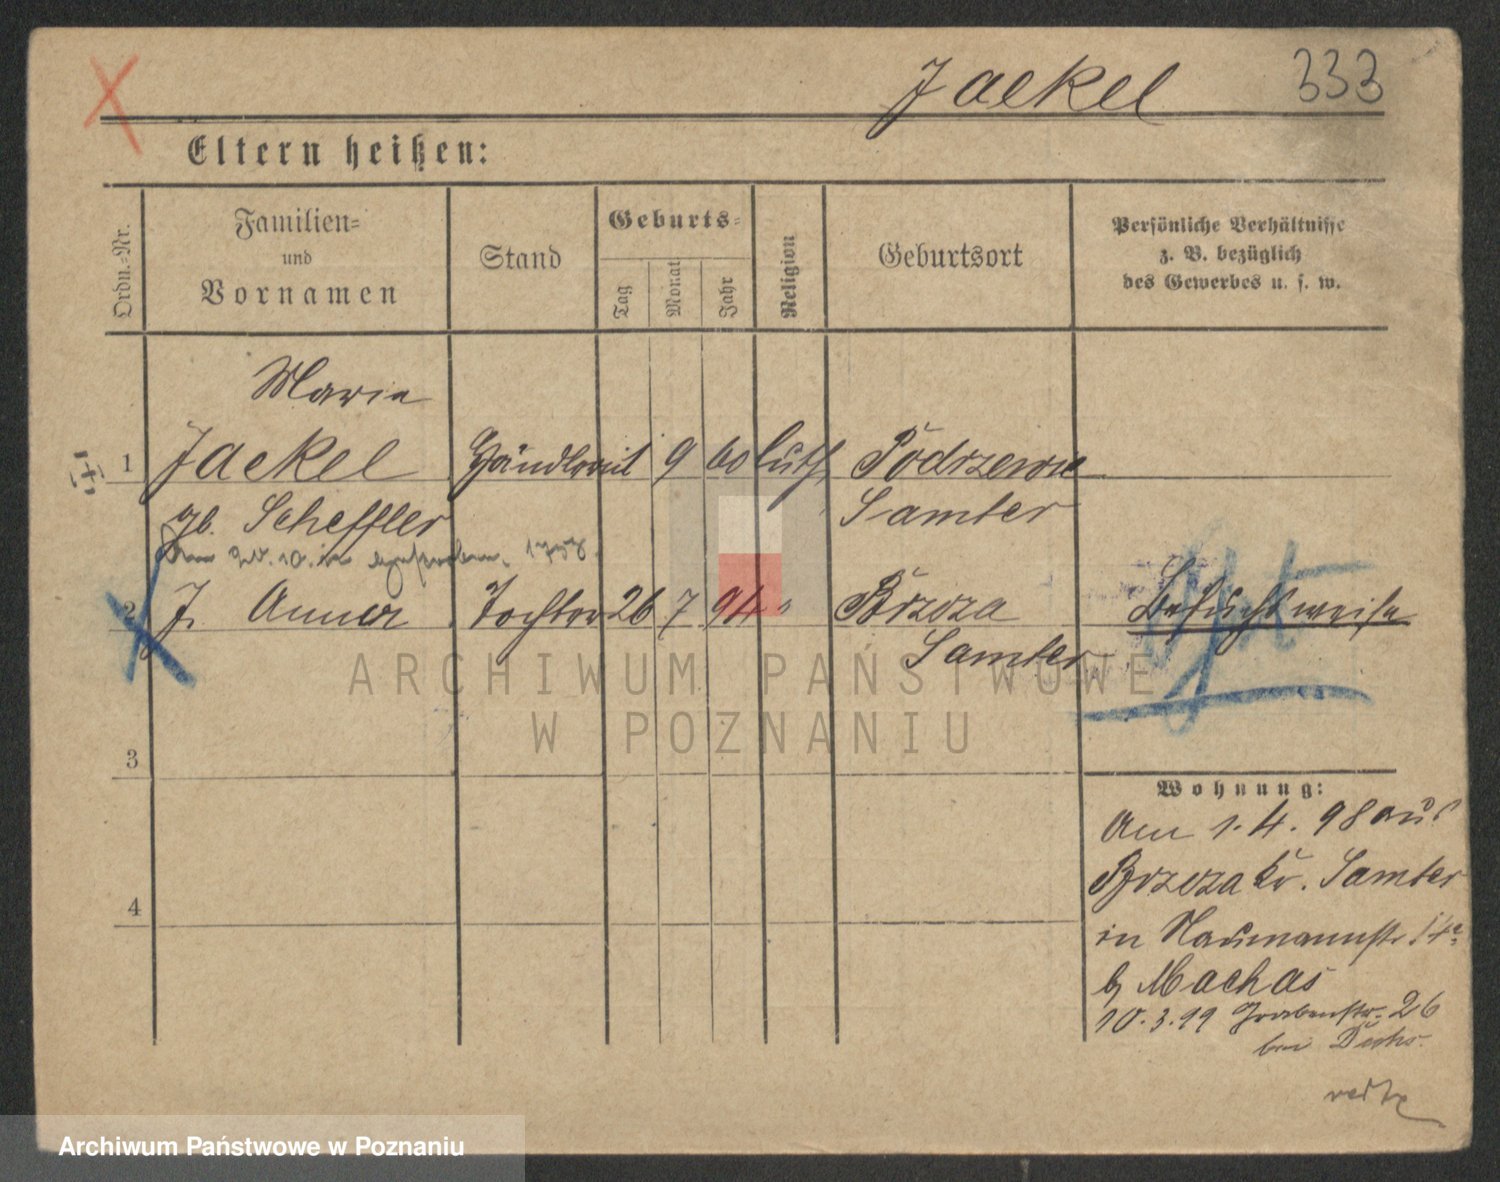 Jaekel 333
Eltern heißen:
Ordn.-Nr.
Familien- und Vornamen
Stand
Geburts-
Tag
Monat
Jahr
Religion
Geburtsort
Persönliche Verhältnisse
z. B. bezüglich
des Gewerbes u. s. w.
Marie
1 Jaekel 9 60 luth Podrzewie
gb. Scheffler Samter
2 J. Anna Tochter 26 7 94 " Brzoza Besuchsweise
Samter
3
4
Wohnung:
Am 1.4.98 aus
Brzoza Kr. Samter
in Naumannstr 14a
b Machas
10.3.99 Grabenstr. 26
bei
ARCHIWUM PAŃSTWOWE
W POZNANIU
Archiwum Państwowe w Poznaniu